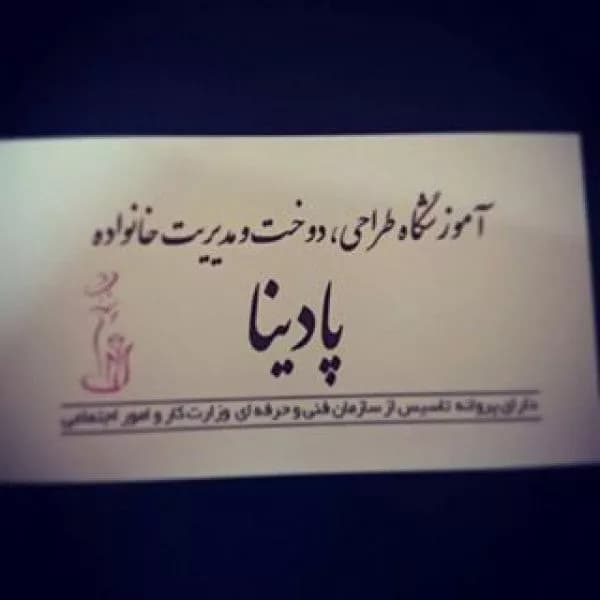 آموزشگاه طراحی، دوخت و مدیریت خانواده
پادینا
دارای پروانه تاسیس از سازمان فنی و حرفه ای وزارت کار و امور اجتماعی